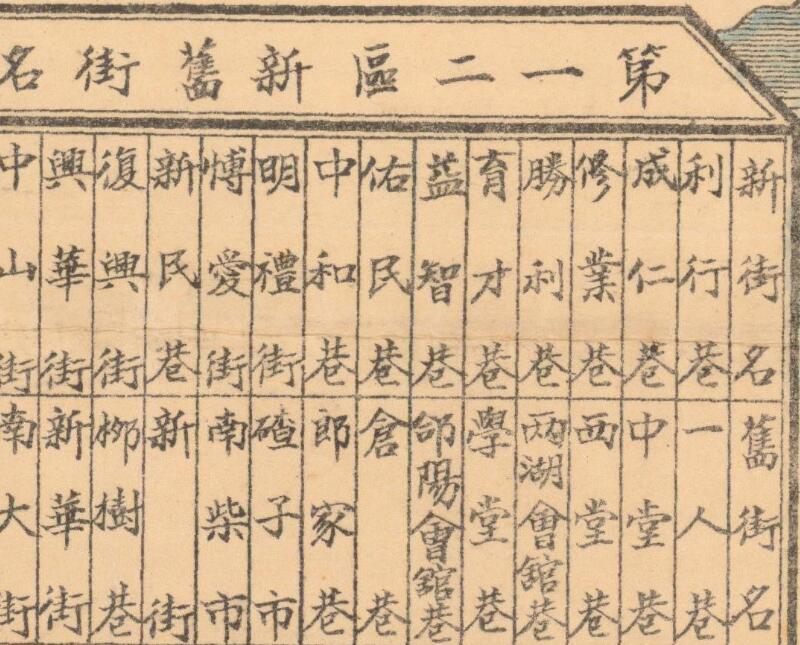 第一二區新舊街名
新街名 舊街名
利行巷 一人巷
成仁巷 中堂巷
修業巷 西堂巷
勝利巷 兩湖會舘巷
育才巷 學堂巷
益智巷 郃陽會舘巷
佑民巷 倉巷
中和巷 郎家巷
明禮街 碴子市
博愛街 南柴市
新民巷 新街
復興街 柳樹巷
興華街 新華街
中山街 南大街